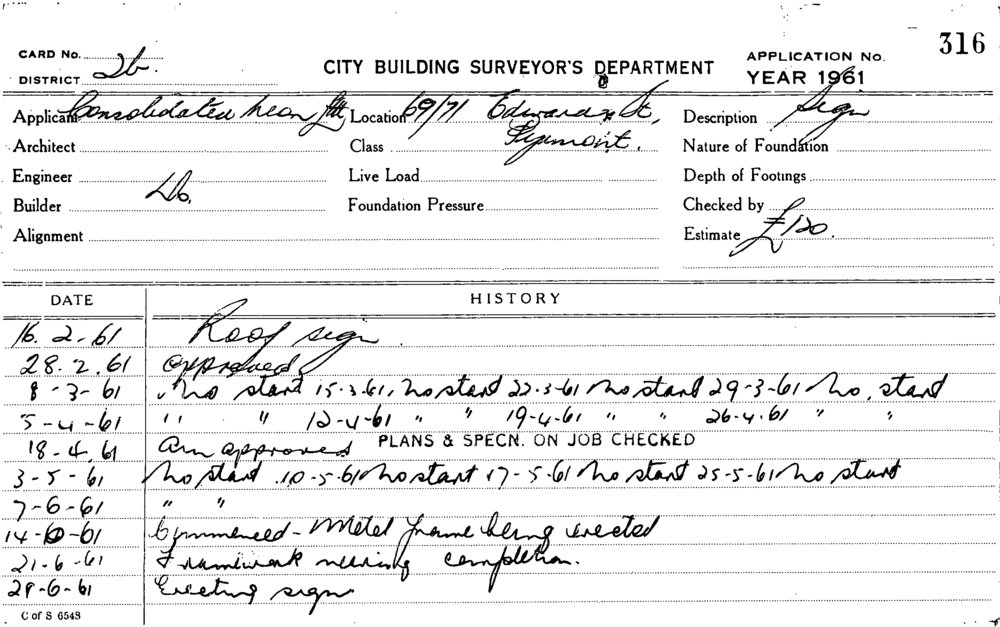 316
CARD No. 26.
DISTRICT
CITY BUILDING SURVEYOR'S DEPARTMENT
APPLICATION No.
YEAR 1961
Applicant Consolidated Neon Location 69/71 Edward St, Description Sign
Architect Class Pyrmont. Nature of Foundation
Engineer Live Load Depth of Footings
Builder Do. Foundation Pressure Checked by
Alignment Estimate £120.
DATE HISTORY
16.2-61 Roof sign
28.2.61 approved
8-3-61 No start 15-3.61, No start 22-3-61 No start 29-3-61 No. start
5-4-61 " " 12-4-61 " " 19-4-61 " " 26-4.61 " "
18-4.61 Am approved PLANS & SPECN. ON JOB CHECKED
3-5-61 No start 10-5-61 No start 17-5-61 No start 25-5-61 No start
7-6-61 " "
14-6-61 Commenced - Metal frame being erected
21-6-61 Framework nearing completion.
29-6-61 Erecting sign
C of S 6548